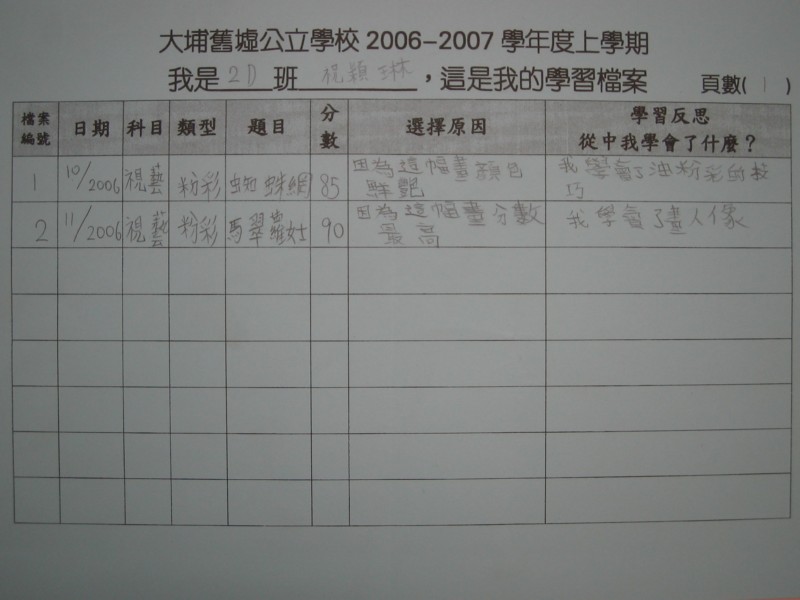 大埔舊墟公立學校 2006-2007 學年度上學期
我是 2D 班 倪穎琳 ，這是我的學習檔案 頁數( 1 )
檔案編號 日期 科目 類型 題目 分數 選擇原因 學習反思 從中我學會了什麼？
1 10/2006 視藝 粉彩 蜘蛛網 85 因為這幅畫顏色鮮艷 我學會了油粉彩的技巧
2 11/2006 視藝 粉彩 馬翠蘿女士 90 因為這幅畫分數最高 我學會了畫人像